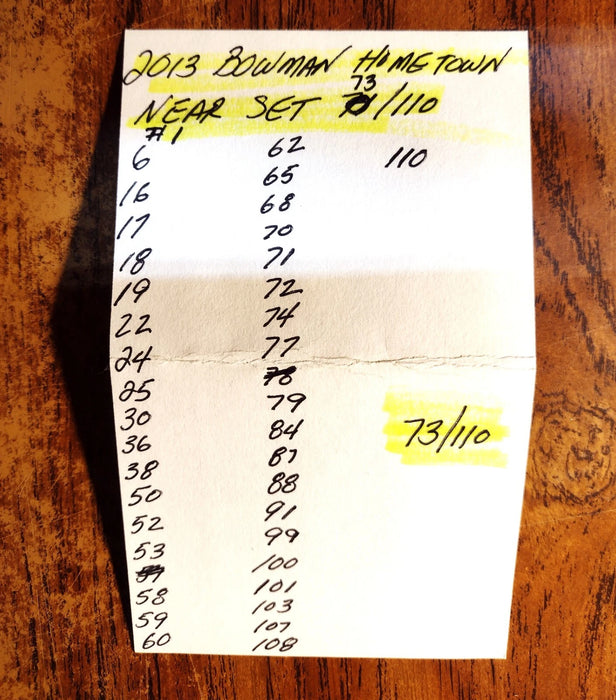 2013 BOWMAN HOMETOWN
NEAR SET 73/110
#1
6
16
17
18
19
22
24
25
30
36
38
50
52
53
58
59
60
62
65
68
70
71
72
74
77
78
79
84
87
88
91
99
100
101
103
107
108
110
73/110